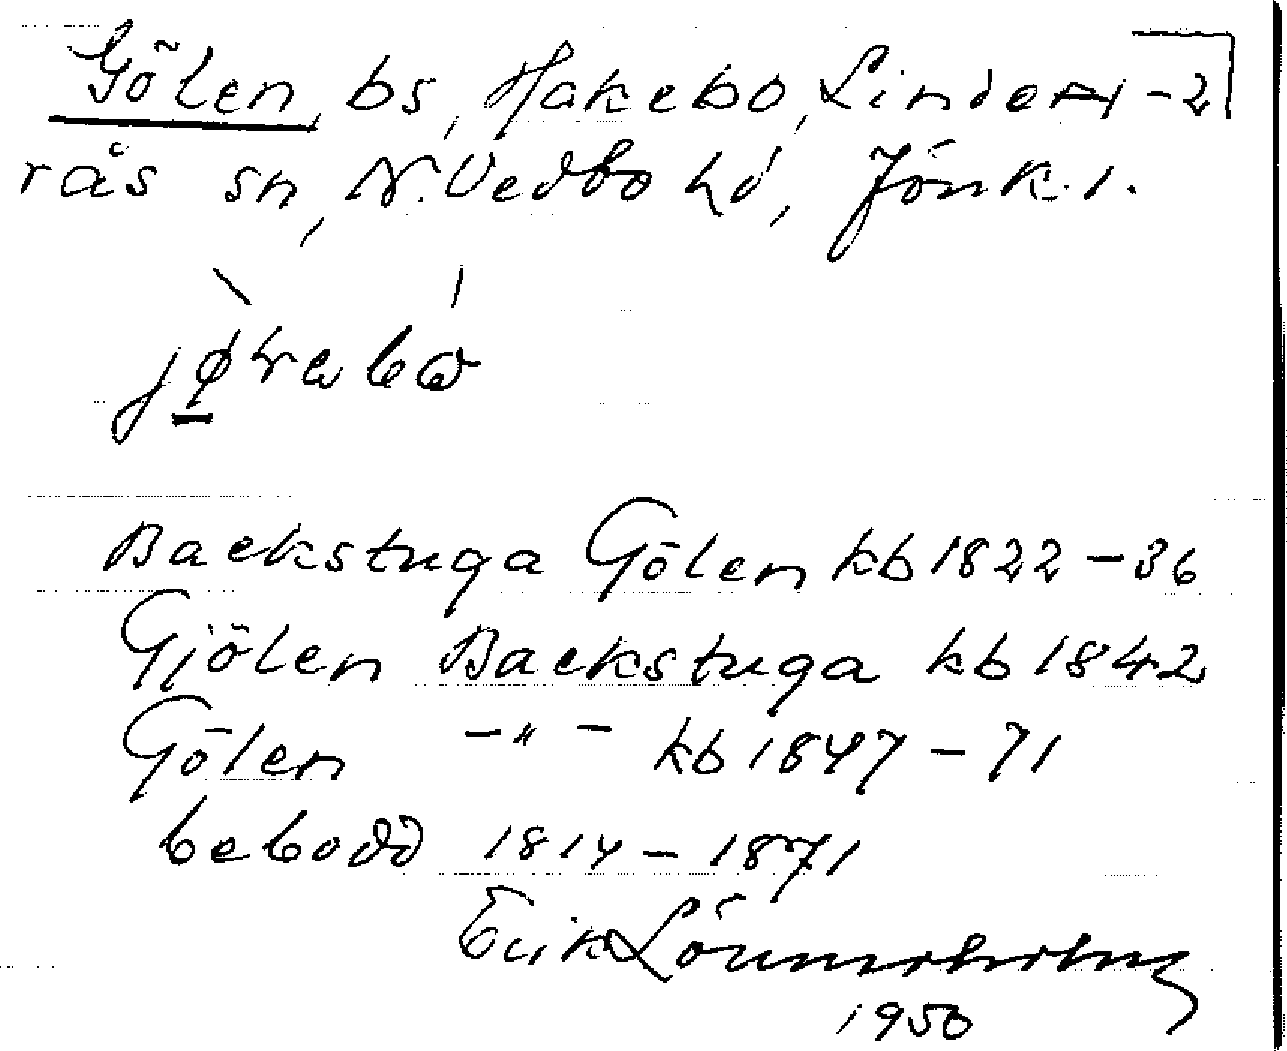 Gölen, bs, Hakebo, Linde- 2
rås sn, N. Vedbo hd, Jönk. l.
Backstuga Gölen kb 1822-36
Gjölen Backstuga kb 1842
Gölen -"- kb 1847-71
bebodd 1814-1871
Erik
1950